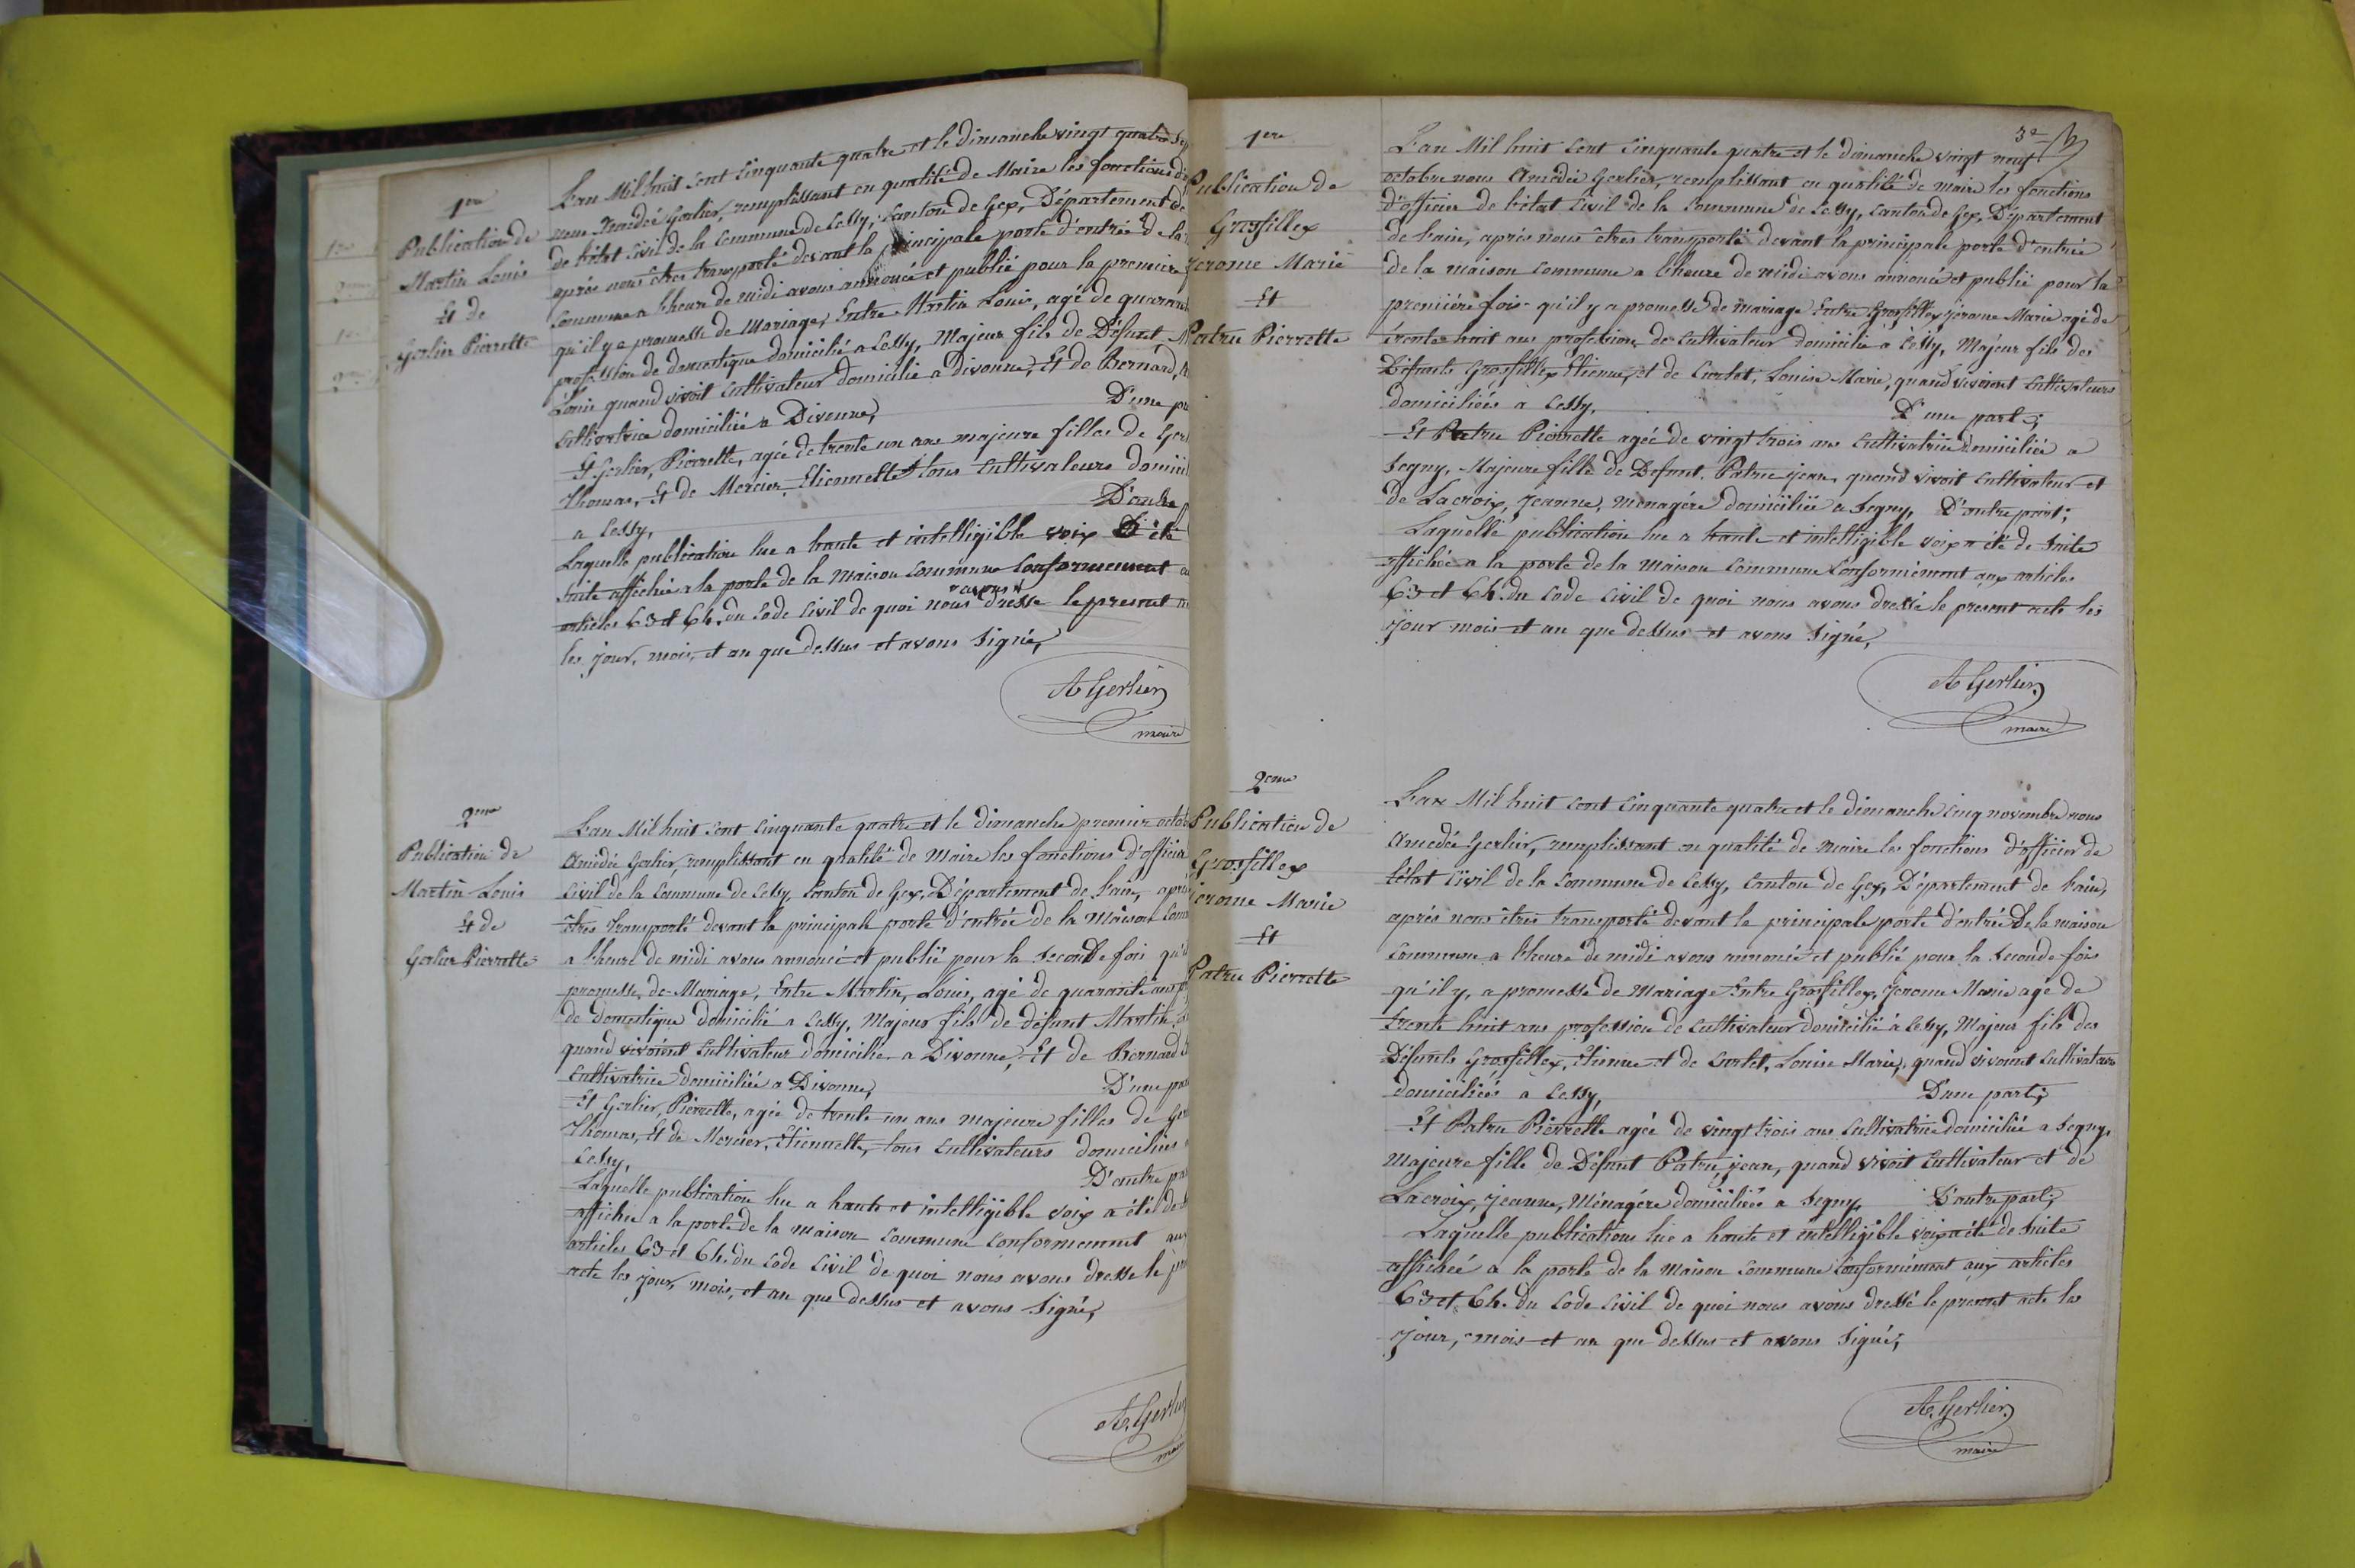 1ere
Publication de
Martin Louis
Et de
Gerlier Pierrette
L'an Mil huit cent cinquante quatre et le dimanche vingt quatre Sep
nous Amédée Gerlier, remplissant en qualité de Maire les fonctions d
de l'état Civil de la Commune de Cessy, Canton de Gex, Département de
après nous êtres transporté devant la principale porte d'entrée de la
Commune a l'heure de midi avons annoncé et publié pour la première
qu'il y a promesse de Mariage, Entre Martin Louis, agé de quarant
profession de domestique domicilié a Cessy, Majeur fils de Défunt M
Louis quand vivoit Cultivateur domicilié a Divonne, Et de Bernard,
Cultivatrice domiciliée a Divonne, D'une pa
Et Gerlier, Pierrette, agée de trente un ans majeure filles de Ger
Thomas, Et de Mercier, Etiennette tous Cultivateurs domicil
a Cessy, D'autre p
Laquelle publication lue a haute et intelligible voix a été
Suite affichée a la porte de la Maison Commune Conformement au
articles 63 et 64. du Code Civil de quoi nous avons dresse le present a
les jour, mois, et an que dessus et avons Signé,
A Gerlier
maire
2eme
Publication de
Martin Louis
Et de
Gerlier Pierrette
L'an Mil huit cent cinquante quatre et le dimanche premier octob
Amédée Gerlier, remplissant en qualité de Maire les fonctions d'officier
Civil de la Commune de Cessy, Canton de Gex, Département de l'ain, aprè
êtres transporté devant la principale porte d'entrée de la Maison Comm
a l'heure de midi avons annoncé et publié pour la seconde fois qu'il
promesse, de Mariage, Entre Martin, Louis, agé de quarante ans p
de domestique domicilié a Cessy, Majeur fils de défunt Martin, Lo
quand vivoient Cultivateur domicilie a Divonne, Et de Bernard
Cultivatrice domiciliée a Divonne, D'une par
Et Gerlier, Pierrette, agée de trente un ans majeure filles de Ger
Thomas, Et de Mercier, Etiennette, tous Cultivateurs domiciliés
Cessy, D'autre pa
Laquelle publication lue a haute et intelligible voix a été de
affichée a la porte de la maison Commune Conformement au
articles 63 et 64. du Code Civil de quoi nous avons dresse le pr
acte les jour, mois, et an que dessus et avons Signé,
A. Gerlier
mai
1ere
Publication de
Grosfillex
Jerome Marie
Et
Patru Pierrette
3e
L'an Mil huit cent Cinquante quatre et le dimanche vingt neuf
octobre nous Amédée Gerlier, remplissant en qualité de maire les fonctions
d'officier de l'état Civil de la Commune de Cessy, Canton de Gex, Département
de l'ain, après nous êtres transporté devant la principale porte d'entrée
de la maison Commune a l'heure de midi avons annoncé et publié pour la
première fois qu'il y a promesse de mariage Entre Grosfillex Jérome Marie agé de
trente huit ans profession de Cultivateur domicilié à Cessy, Majeur fils des
Défunts Grosfillex Etienne, et de Curtet, Louise Marie, quand vivoient Cultivateurs
domiciliés a Cessy, D'une part;
Et Patru Pierrette agée de vingt trois ans Cultivatrice domiciliée a
Segny, Majeure fille de Defunt. Patru jean, quand vivoit Cultivateur et
de Lacroix, Jeanne, menagère domiciliée a Segny, D'autre part;
Laquelle publication lue a haute et intelligible voix a été de Suite
affichée a la porte de la Maison Commune Conformément aux articles
63 et 64. du Code Civil de quoi nous avons dressé le present acte les
jour mois et an que dessus et avons Signé,
A Gerlier
maire
2eme
Publication de
Grosfillex
Jerome Marie
Et
Patru Pierrette
L'an Mil huit cent Cinquante quatre et le dimanche Cinq novembre nous
Amedée Gerlier, remplissant en qualité de maire les fonctions d'officier de
l'état Civil de la Commune de Cessy, Canton de Gex, Département de l'ain,
après nous êtres transporté devant la principale porte d'entrée De la maison
Commune a l'heure de midi avons annoncé et publié pour la Seconde fois
qu'il y, a promesse de Mariage Entre Grosfillex, Jerome Marie agé de
trente huit ans profession de Cultivateur domicilié à Cessy, Majeur fils des
Défunts Grosfillex, Etienne et de Curtet, Louise Marie, quand vivoient Cultivateurs
domiciliés a Cessy, D'une part;
Et Patru Pierrette agée de vingt trois ans Cultivatrice domiciliée a Segny,
Majeure fille de Défunt Patru jean, quand vivoit Cultivateur et de
Lacroix, Jeanne, Ménagère domiciliée a Segny, D'autre part;
Laquelle publications lue a haute et intelligible voix a été de Suite
affichée a la porte de la Maison Commune Conformément aux articles
63 et 64. du Code Civil de quoi nous avons dressé le present acte les
jour, mois et an que dessus et avons Signé;
A. Gerlier
maire